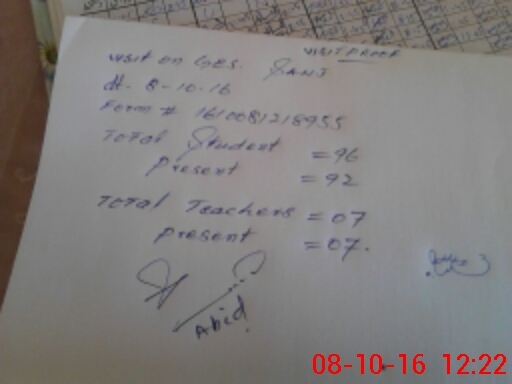 VISIT PROOF
visit on GES. SANJ
dt. 8-10-16
Form # 1610081218955
Total Student = 96
Present = 92
Total Teachers = 07
Present = 07.
Abid
08-10-16 12:22